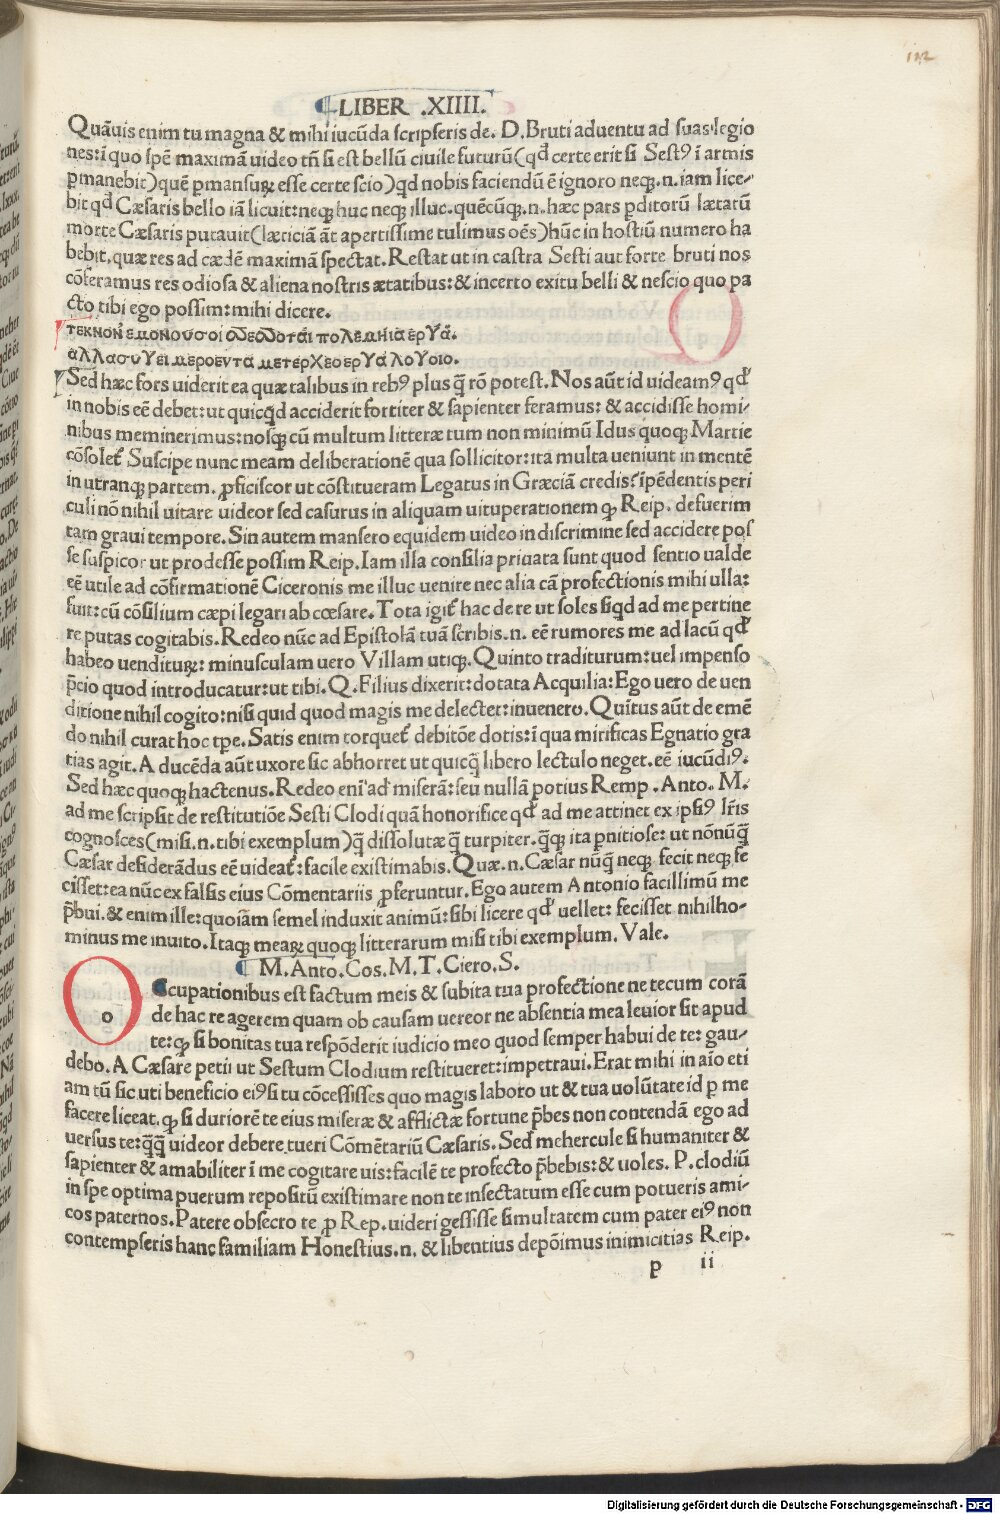 112
LIBER .XIIII.
Quāuis enim tu magna & mihi iucūda scripseris de. D. Bruti aduentu ad suas legio
nes: ī quo spē maximā uideo tñ si est bellū ciuile futurū (qđ certe erit si Sestꝰ ī armis
ꝑmanebit) quē ꝑmansuꝝ esse certe scio) qđ nobis faciendū ē ignoro neqꝫ .n. iam lice-
bit qđ Cæsaris bello iā licuit: neqꝫ huc neqꝫ illuc. quēcūqꝫ .n. hæc pars ꝑditorū lætatū
morte Cæsaris putauit (læticiā āt apertissime tulimus oēs) hūc in hostiū numero ha
bebit, quæ res ad cædē maximā spectat. Restat ut in castra Sesti aut forte bruti nos
cōferamus res odiosa & aliena nostris ætatibus: & incerto exitu belli & nescio quo pa
cto tibi ego possim: mihi dicere.
Sed hæc fors uiderit ea quæ talibus in rebꝰ plus q̄ rō potest. Nos aūt id uideamꝰ qđ
in nobis eē debet: ut quicqd acciderit fortiter & sapienter feramus: & accidisse homi-
nibus meminerimus: nosqꝫ cū multum litteræ tum non minimū Idus quoqꝫ Martie
cōsolet̄ Suscipe nunc meam deliberationē qua sollicitor: ita multa ueniunt in mentē
in utranqꝫ partem. ꝓficiscor ut cōstitueram Legatus in Græciā credis? īpēdentis peri
culi nō nihil uitare uideor sed casurus in aliquam uituperationem qꝫ Reip. defuerim
tam graui tempore. Sin autem mansero equidem uideo in discrimine sed accidere pos
se suspicor ut prodesse possim Reip. Iam illa consilia priuata sunt quod sentio ualde
eē utile ad cōfirmationē Ciceronis me illuc uenire nec alia cā profectionis mihi ulla:
fuit: cū cōsilium cæpi legari ab cœsare. Tota igit̄ hac de re ut soles siqd ad me pertine
re putas cogitabis. Redeo nūc ad Epistolā tuā scribis .n. eē rumores me ad lacū qđ
habeo uendituꝝ: minusculam uero Villam utiqꝫ. Quinto traditurum: uel impenso
p̄cio quod introducatur: ut tibi. Q. Filius dixerit: dotata Acquilia: Ego uero de uen
ditione nihil cogito: nisi quid quod magis me delectet: inuenero. Quītus aūt de emē
do nihil curat hoc tp̄e. Satis enim torquet̄ debitōe dotis: ī qua mirificas Egnatio gra
tias agit. A ducēda aūt uxore sic abhorret ut quicq̄ libero lectulo neget. eē iucūdiꝰ.
Sed hæc quoqꝫ hactenus. Redeo enī ad miserā: seu nullā potius Remp. Anto. M.
ad me scripsit de restitutiōe Sesti Clodi quā honorifice qđ ad me attinet ex ipsiꝰ lr̄is
cognosces (misi .n. tibi exemplum) q̄ dissolutæ q̄ turpiter. q̄qꝫ ita ꝑnitiose: ut nōnūq̄
Cæsar desiderādus eē uideat̄: facile existimabis. Quæ .n. Cæsar nūq̄ neqꝫ fecit neqꝫ fe
cisset: ea nūc ex falsis eius Cōmentariis ꝓferuntur. Ego autem Antonio facillimū me
p̄bui. & enim ille: quoīam semel induxit animū: sibi licere qđ uellet: fecisset nihilho-
minus me inuito. Itaqꝫ meaꝝ quoqꝫ litterarum misi tibi exemplum. Vale.
M. Anto. Cos. M. T. Ciero. S.
Occupationibus est factum meis & subita tua profectione ne tecum corā
de hac re agerem quam ob causam uereor ne absentia mea leuior sit apud
te: qꝫ si bonitas tua respōderit iudicio meo quod semper habui de te: gau-
debo. A Cæsare petii ut Sestum Clodium restitueret: impetraui. Erat mihi in aīo eti
am tū sic uti beneficio eiꝰ si tu cōcessisses quo magis laboro ut & tua uolūtate id ꝑ me
facere liceat. qꝫ si duriorē te eius miseræ & afflictæ fortune p̄bes non contendā ego ad
uersus te: q̄q̄ uideor debere tueri Cōmētariū Cæsaris. Sed mehercule si humaniter &
sapienter & amabiliter ī me cogitare uis: facilē te profecto p̄bebis: & uoles. P. clodiū
in spe optima puerum repositū existimare non te insectatum esse cum potueris ami-
cos paternos. Patere obsecro te ꝓ Rep. uideri gessisse simultatem cum pater eiꝰ non
contempseris hanc familiam Honestius .n. & libentius depōimus inimicitias Reip.
p ii
Digitalisierung gefördert durch die Deutsche Forschungsgemeinschaft - DFG